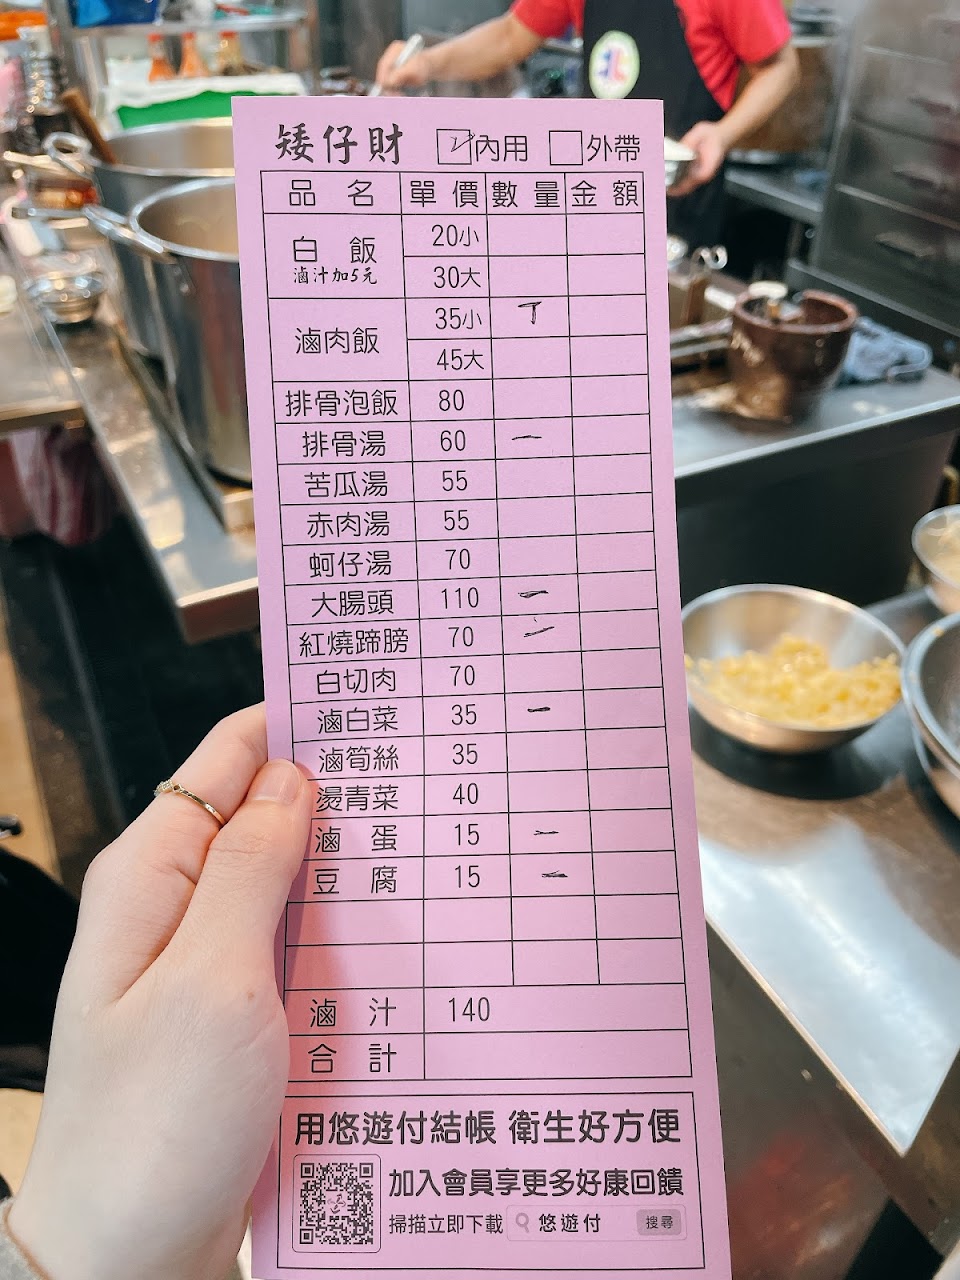 矮仔財 ☑內用 ☐外帶
品名 單價 數量 金額
白飯 20小
滷汁加5元 30大
滷肉飯 35小 丅
45大
排骨泡飯 80
排骨湯 60 一
苦瓜湯 55
赤肉湯 55
蚵仔湯 70
大腸頭 110 一
紅燒蹄膀 70 一
白切肉 70
滷白菜 35 一
滷筍絲 35
燙青菜 40
滷蛋 15 一
豆腐 15 一
滷汁 140
合計
用悠遊付結帳 衛生好方便
加入會員享更多好康回饋
掃描立即下載 悠遊付 搜尋